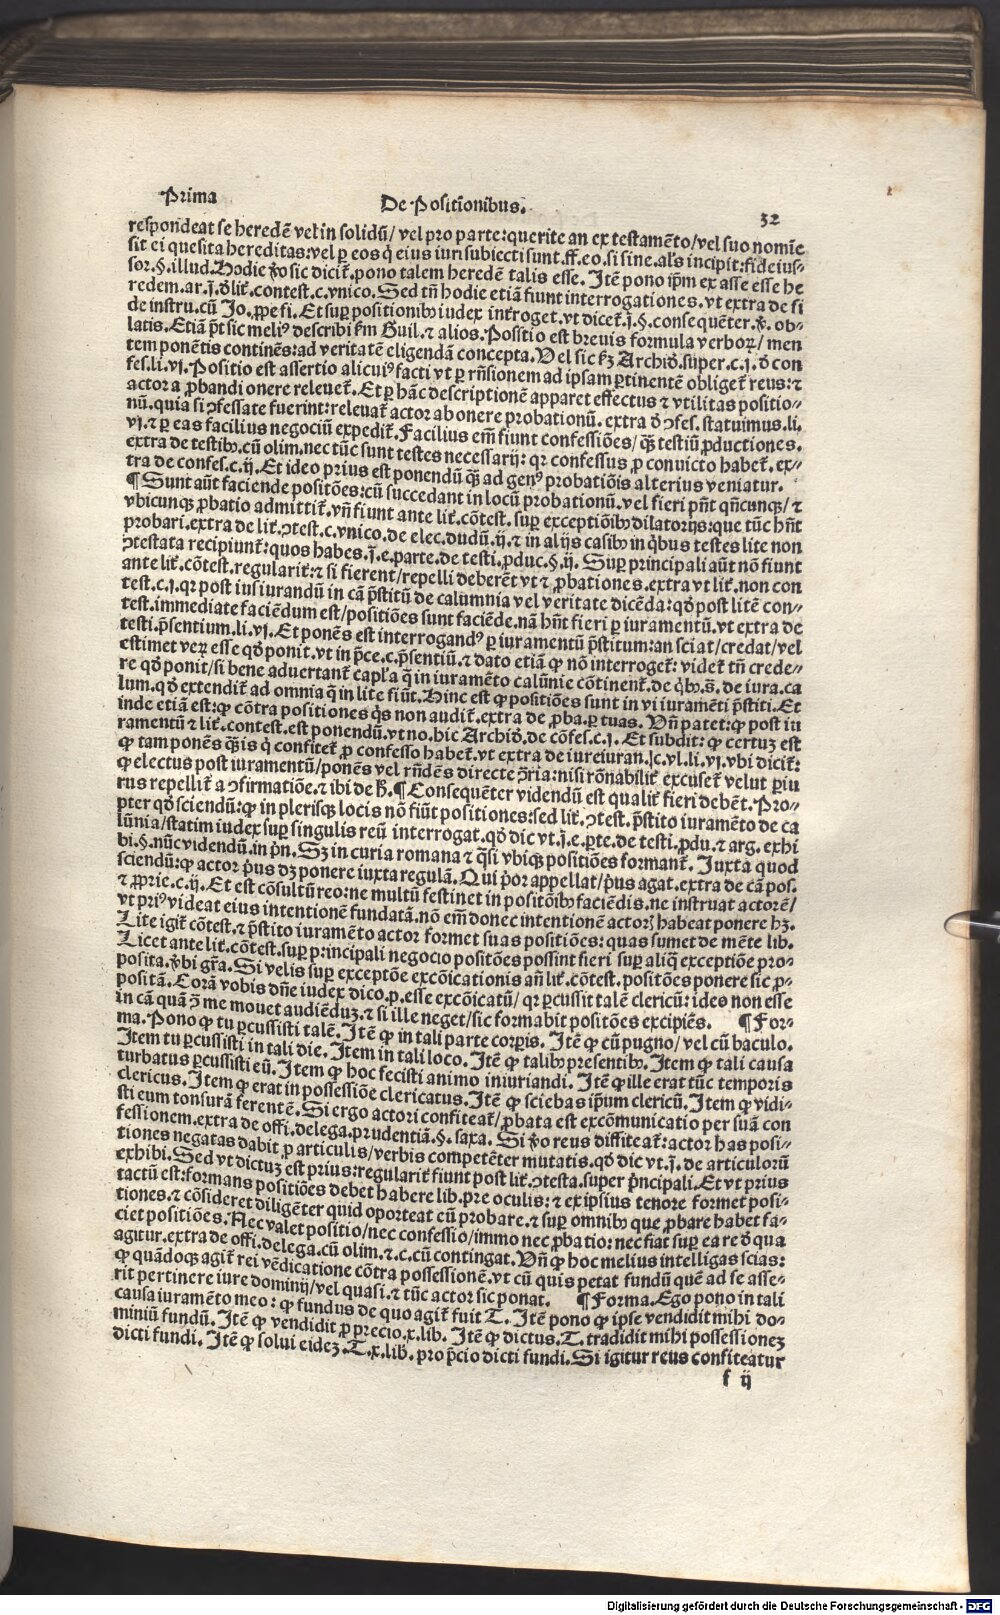 Prima
De Positionibus.
32
respondeat se heredē vel in solidū/ vel pro parte: querite an ex testamēto/ vel suo nomīe
sit ei quesita hereditas: vel per eos q̄ eius iuri subiecti sunt. ff. eo. si sine. al's incipit: fideius-
sor. §. illud. Hodie v̄o sic dicit̄. pono talem heredē talis esse. Itē pono ip̄m ex asse esse he
redem. ar. j. d' lit̄. contest. c. vnico. Sed tn̄ hodie etiā fiunt interrogationes. vt extra de fi
de instru. cū Jo. prope fi. Et super positionibꝰ iudex int̄roget. vt dicet̄. j. §. consequēter. v̄. ob-
latis. Etiā p̄t sic meliꝰ describi s'm Guil. ⁊ alios. Positio est breuis formula verboꝝ/ men
tem ponētis continēs: ad veritatē eligendā concepta. Vel sic s'm Archid'. super. c. j. d' con
fes. li. vj. Positio est assertio alicuiꝰ facti vt per rn̄sionem ad ipsam pertinentē obliget̄ reus: ⁊
actor a probandi onere releuet̄. Et per hāc descriptionē apparet effectus ⁊ vtilitas positio-
nū. quia si ɔfessate fuerint: releuat̄ actor ab onere probationū. extra d' ɔfes. statuimus. li.
vj. ⁊ per eas facilius negociū expedit̄. Facilius em̄ fiunt confessiōes/ q̄ꝫ testiū productiones.
extra de testibꝰ. cū olim. nec tūc sunt testes necessarij: qꝛ confessus pro conuicto habet̄. ex-
tra de confes. c. ij. Et ideo prius est ponendū q̄ꝫ ad genꝰ probatiōis alterius veniatur.
¶ Sunt aūt faciende positōes: cū succedant in locū probationū. vel fieri pn̄t qn̄cunqꝫ/ ⁊
vbicunqꝫ probatio admittit̄. vn̄ fiunt ante lit̄. cōtest. super exceptiōibꝰ dilatorijs: que tūc hn̄t
probari. extra de lit̄. ɔtest. c. vnico. de elec. dudū. ij. ⁊ in alijs casibꝰ in q̄bus testes lite non
ɔtestata recipiunt̄: quos habes. j. e. parte. de testi. produc. §. ij. Super principali aūt nō fiunt
ante lit̄. cōtest. regularit̄: ⁊ si fierent/ repelli deberēt vt ⁊ probationes. extra vt lit̄. non con
test. c. j. qꝛ post iusiurandū in cā p̄stitū de calumnia vel veritate dicēda: qd' post litē con-
test. immediate faciēdum est/ positiōes sunt faciēde. nā hn̄t fieri per iuramentū. vt extra de
testi. p̄sentium. li. vj. Et ponēs est interrogandꝰ per iuramentū p̄stitum: an sciat/ credat/ vel
estimet veꝝ esse qd' ponit. vt in p̄ce. c. p̄sentiū. ⁊ dato etiā ꝙ nō interroget̄: videt̄ tn̄ crede-
re qd' ponit/ si bene aduertant̄ capl'a q̄ in iuramēto calūnie cōtinent̄. de q̄bꝰ. s̄. de iura. ca
lum. qd' extendit̄ ad omnia q̄ in lite fiūt. Hinc est ꝙ positiōes sunt in vi iuramēti p̄stiti. Et
inde etiā est: ꝙ cōtra positiones q̄s non audit̄. extra de proba. per tuas. Vn̄ patet: ꝙ post iu
ramentū ⁊ lit̄. contest. est ponendū. vt no. hic Archid'. de cōfes. c. j. Et subdit: ꝙ certuꝫ est
ꝙ tam ponēs q̄ꝫ is q̄ confitet̄ pro confesso habet̄. vt extra de iureiuran. c. vl. li. vj. vbi dicit̄:
ꝙ electus post iuramentū/ ponēs vel rn̄dēs directe ɔ̄ria: nisi rōnabilit̄ excuset̄ velut periu
rus repellit̄ a ɔfirmatiōe. ⁊ ibi de h̄. ¶ Consequēter videndū est qualit̄ fieri debēt. Pro-
pter qd' sciendū: ꝙ in plerisqꝫ locis nō fiūt positiones: sed lit̄. ɔtest. p̄stito iuramēto de ca
lūnia/ statim iudex super singulis reū interrogat. qd' dic vt. j. e. p̄te. de testi. produ. ⁊ arg. exhi
bi. §. nūc videndū. in p̄n. Sꝫ in curia romana ⁊ q̄si vbiqꝫ positiōes formant̄. Juxta quod
sciendū: ꝙ actor p̄us dꝫ ponere iuxta regulā. Qui p̄or appellat/ p̄us agat. extra de cā pos.
⁊ proprie. c. ij. Et est cōsultū reo: ne multū festinet in positōibꝰ faciēdis. ne instruat actorē/
vt priꝰ videat eius intentionē fundatā. nō em̄ donec intentionē actorꝫ habeat ponere hꝫ.
Lite igit̄ cōtest. ⁊ p̄stito iuramēto actor formet suas positiōes: quas sumet de mēte lib.
Licet ante lit̄. cōtest. super principali negocio positōes possint fieri super aliq̄ exceptiōe pro-
posita. v̄bi gr̄a. Si velis super exceptōe excōicationis an̄ lit̄. cōtest. positōes ponere sic pro-
positā. Corā vobis dn̄e iudex dico. p. esse excōicatū/ qꝛ percussit talē clericū: ides non esse
in cā quā ɔ̄ me mouet audiēduꝫ. ⁊ si ille neget/ sic formabit positōes excipiēs. ¶ For-
ma. Pono ꝙ tu percussisti talē. Itē ꝙ in tali parte corporis. Itē ꝙ cū pugno/ vel cū baculo.
Item tu percussisti in tali die. Item in tali loco. Itē ꝙ talibꝰ presentibꝰ. Item ꝙ tali causa
turbatus percussisti eū. Item ꝙ hoc fecisti animo iniuriandi. Itē ꝙ ille erat tūc temporis
clericus. Item ꝙ erat in possessiōe clericatus. Itē ꝙ sciebas ip̄um clericū. Item ꝙ vidi-
sti eum tonsurā ferentē. Si ergo actori confiteat̄/ probata est excōmunicatio per suā con
fessionem. extra de offi. delega. prudentiā. §. saxa. Si v̄o reus diffiteat̄: actor has posi-
tiones negatas dabit per articulis/ verbis competēter mutatis. qd' dic vt. j. de articulorū
exhibi. Sed vt dictuꝫ est prius: regularit̄ fiunt post lit̄. ɔtesta. super p̄ncipali. Et vt prius
tactū est: formans positiōes debet habere lib. pre oculis: ⁊ ex ipsius tenore formet posi-
tiones. ⁊ cōsideret diligēter quid oporteat eū probare. ⁊ super omnibꝰ que probare habet fa-
ciet positiōes. Nec valet positio/ nec confessio/ immo nec probatio: nec fiat super ea re d' qua
agitur. extra de offi. delega. cū olim. ⁊. c. cū contingat. Vn̄ ꝙ hoc melius intelligas scias:
ꝙ quādoqꝫ agit̄ rei vēdicatione cōtra possessionē. vt cū quis petat fundū quē ad se asse-
rit pertinere iure dominij/ vel quasi. ⁊ tūc actor sic ponat. ¶ Forma. Ego pono in tali
causa iuramēto meo: ꝙ fundus de quo agit̄ fuit T. Itē pono ꝙ ipse vendidit mihi do-
miniū fundū. Itē ꝙ vendidit pro precio. x. lib. Itē ꝙ dictus. T. tradidit mihi possessioneꝫ
dicti fundi. Itē ꝙ solui eideꝫ. T. x. lib. pro p̄cio dicti fundi. Si igitur reus confiteatur
f ij
Digitalisierung gefördert durch die Deutsche Forschungsgemeinschaft - DFG